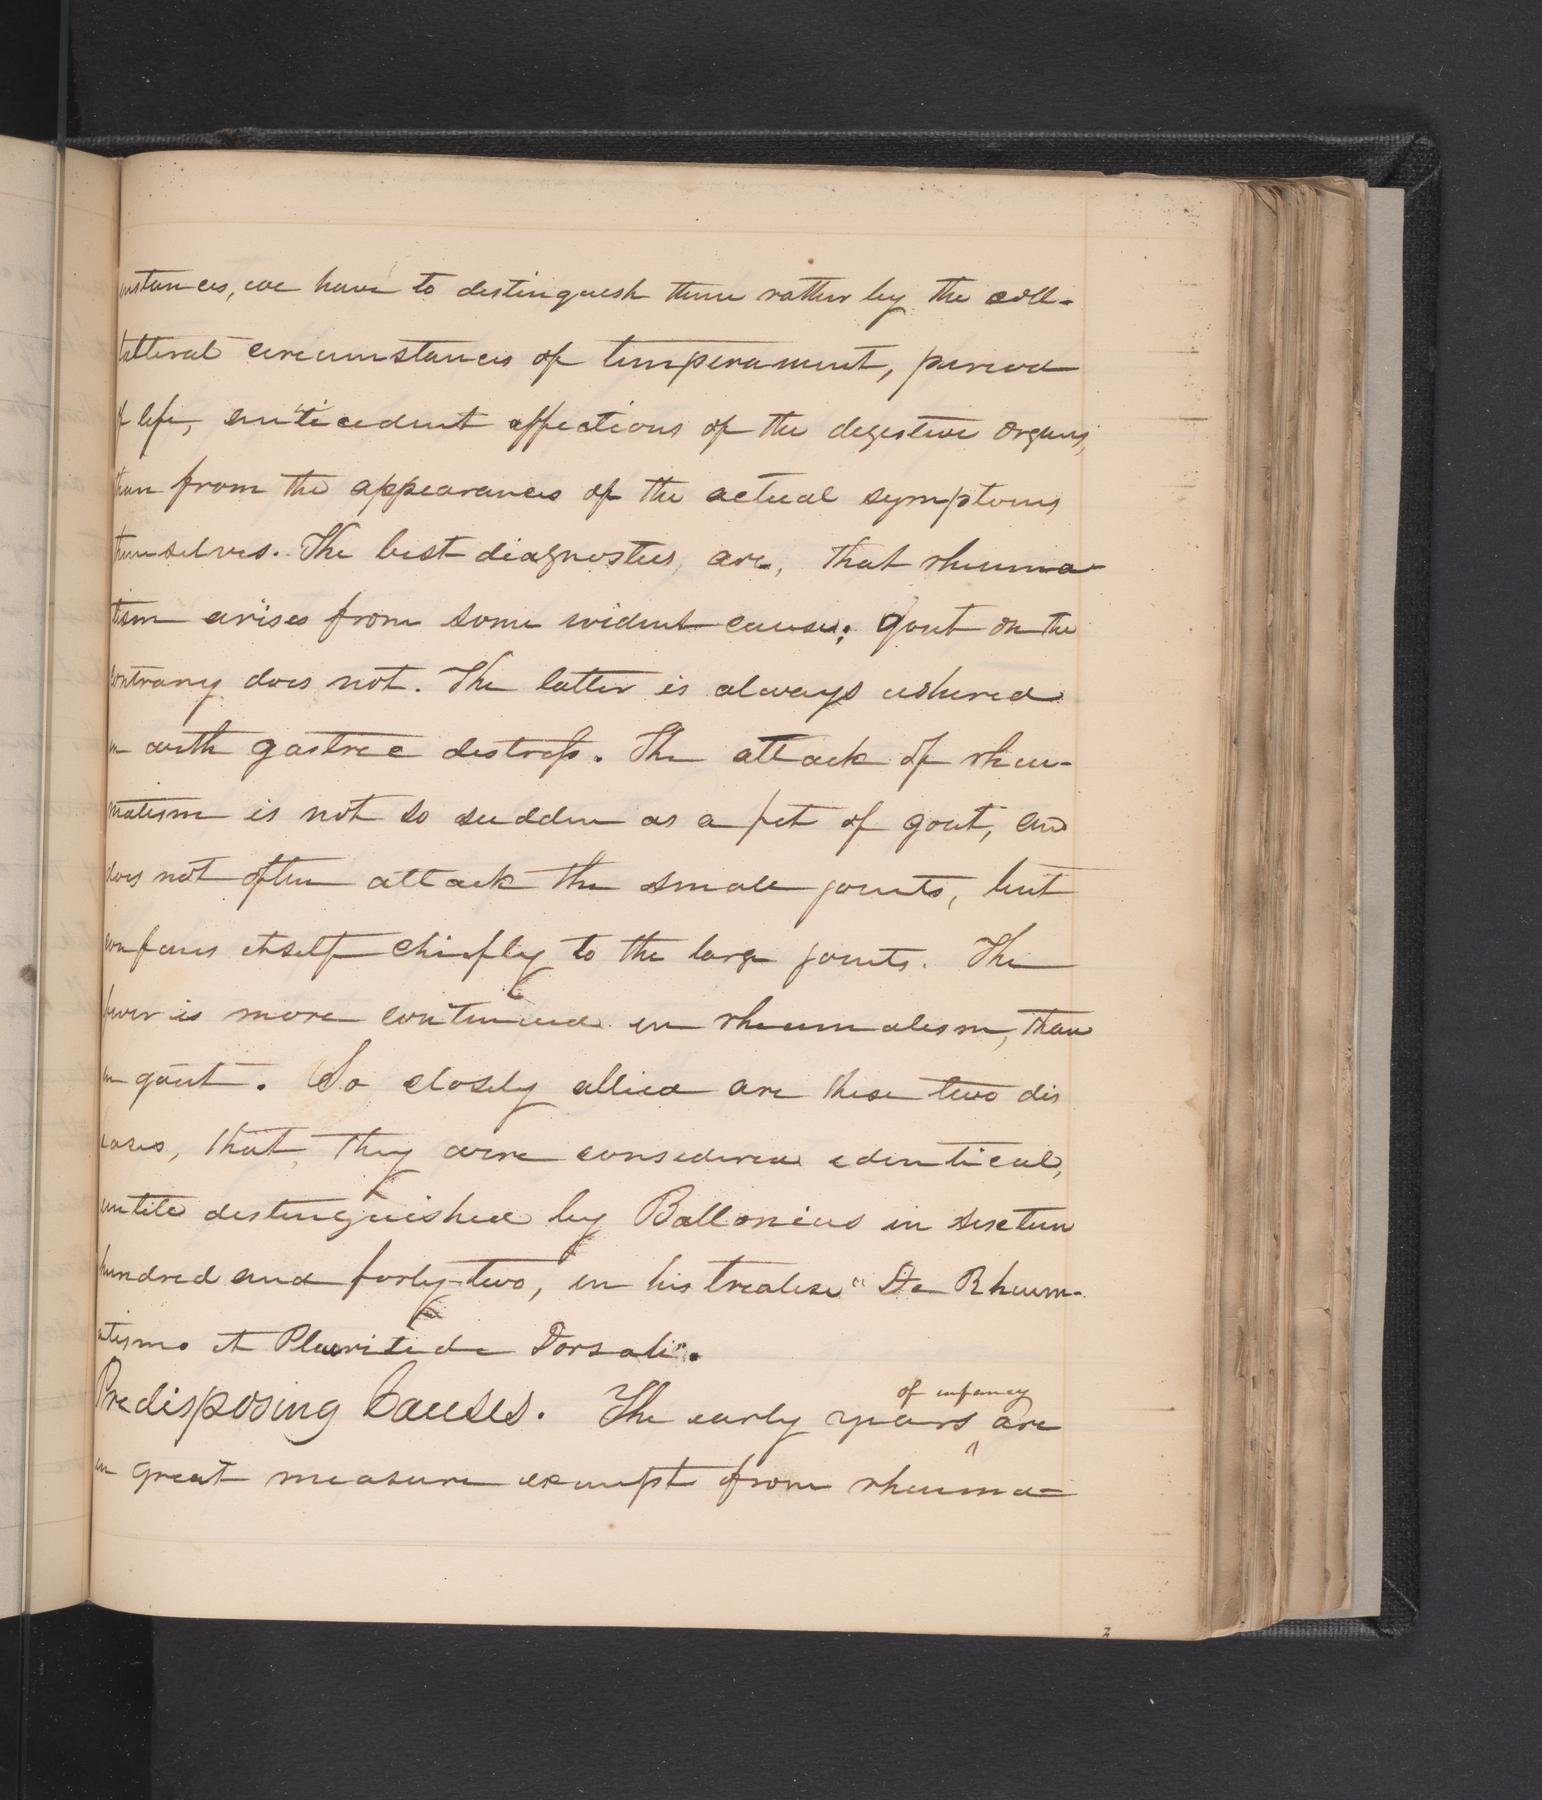 instances, we have to distinguish them rather by the coll-
latteral circumstances of temperament, period
of life, anticedent affections of the degestive organs,
than from the appearances of the actual symptoms
themselves. The best diagnostics, are, that rheuma-
tism arises from some evident cause; gout on the
contrary does not. The latter is always ushered
in with gastric distress. The attack of rheu-
matism is not so sudden as a fit of gout, and
does not often attack the small joints, but
confines itself chiefly to the large joints. The
fever is more continued in rheumatism, than
in gout. So closely allied are these two dis
eases, that, they were considered identical,
untill distinguished by Ballonius in sixteen
hundred and forty-two, in his treatise "De Rheum-
atismo et Pleuritide Dorsali".
Predisposing Causes. The early years of infancy are
in great measure exempt from rheuma-
2